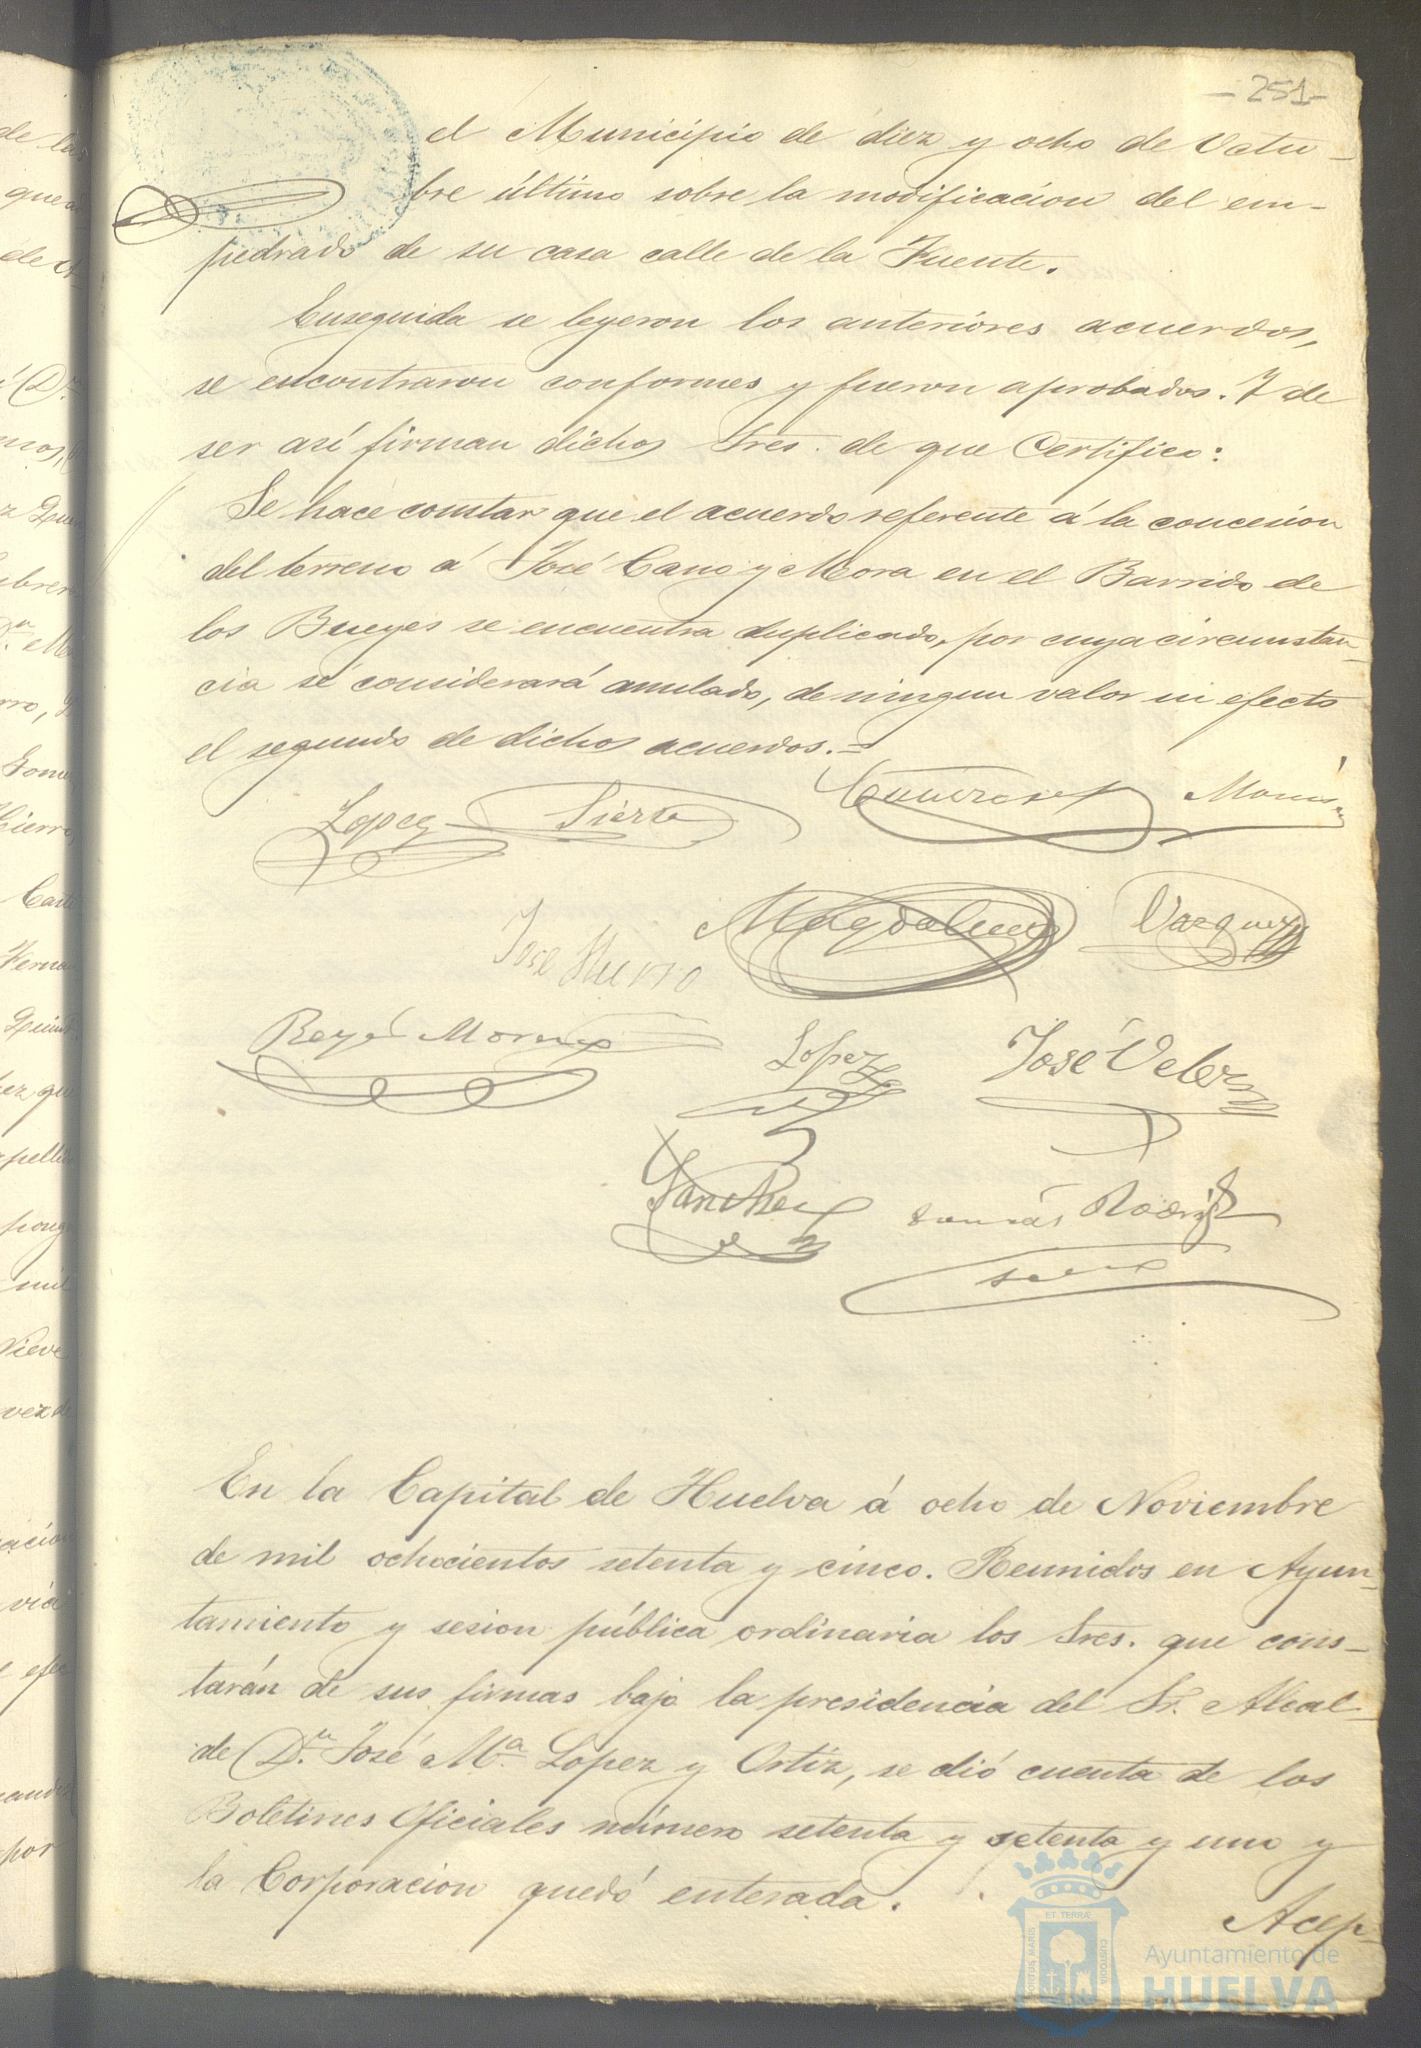 - 251 -
el Municipio de diez y ocho de Octu-
bre último sobre la modificacion del em-
pedrado de su casa calle de la Fuente.
Enseguida se leyeron los anteriores acuerdos,
se encontraron conformes y fueron aprobados. Y de
ser así firman dichos Sres. de que Certifico:
Se hace constar que el acuerdo referente á la concesion
del terreno á José Cano y Mora en el Barrido de
los Bueyes se encuentra duplicado, por cuya circunstan-
cia se considerará anulado, de ningun valor ni efecto
el segundo de dichos acuerdos.=
Lopez Sierra
Jose Hierro Magdalena Vazquez
Reyes Moreno Lopez José Velez
Sanchez Tomás Rodrig
En la Capital de Huelva á ocho de Noviembre
de mil ochocientos setenta y cinco. Reunidos en Ayun-
tamiento y sesion pública ordinaria los Sres. que cons-
tarán de sus firmas bajo la presidencia del Sr. Alcal-
de Dn. José Mª Lopez y Ortiz, se dió cuenta de los
Boletines Oficiales número setenta y setenta y uno y
la Corporacion quedó enterada.
Acep-
Ayuntamiento de
HUELVA